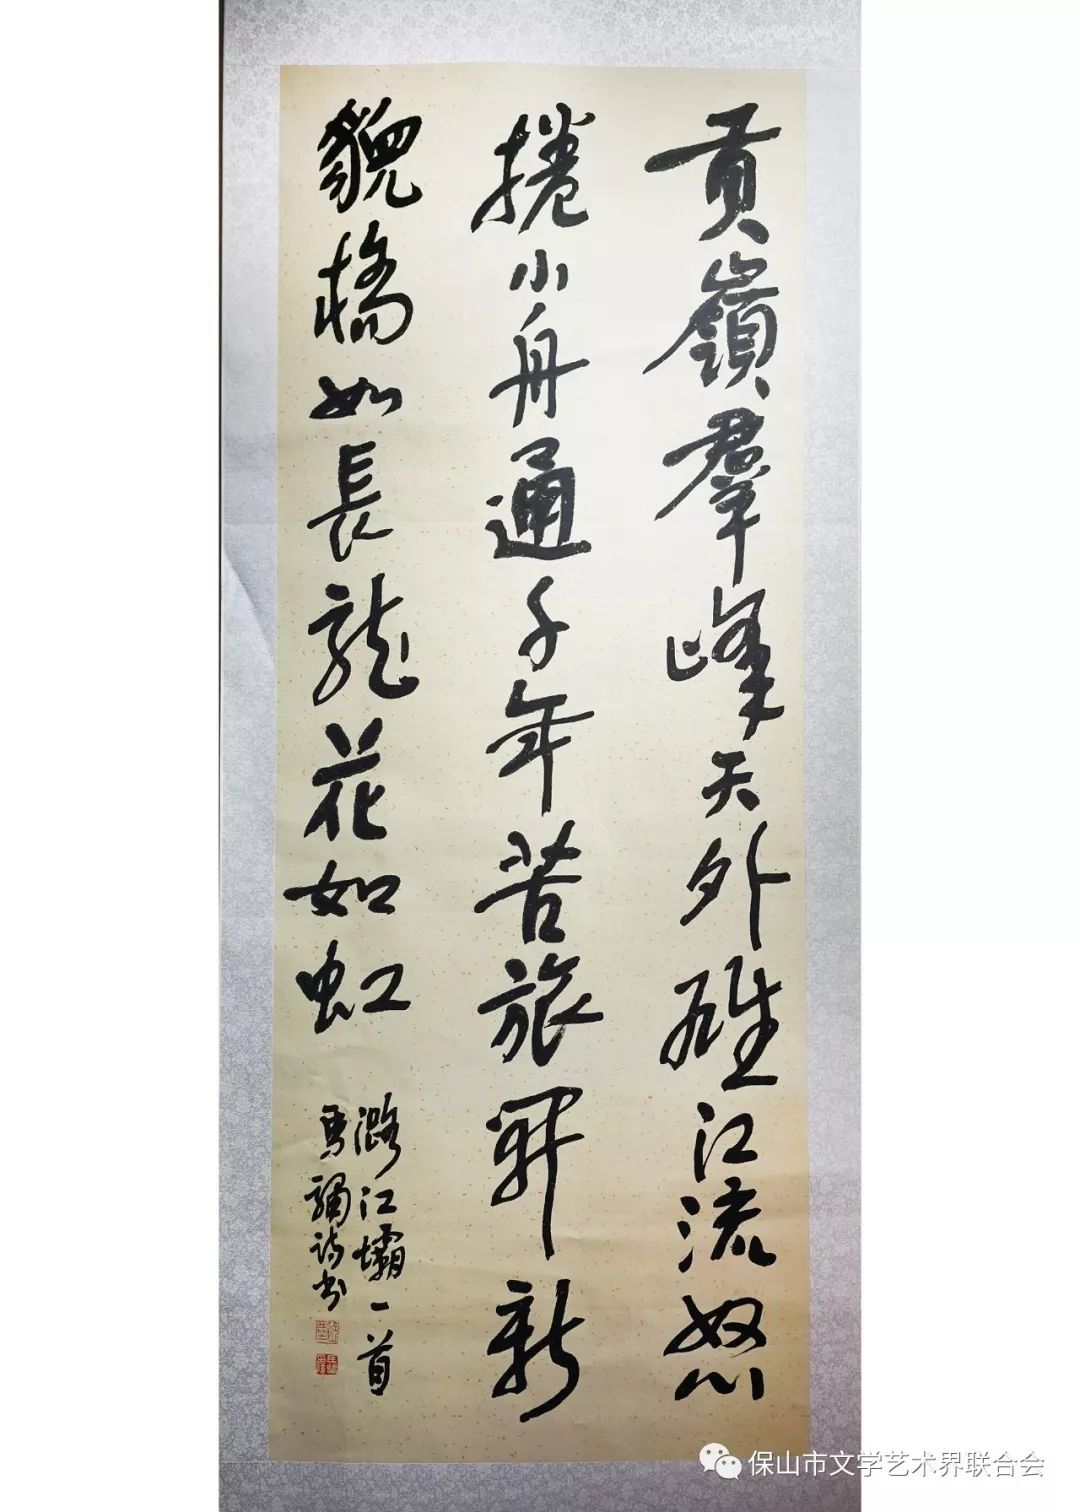 貢嶺羣峰天外雄江流怒
捲小舟通千年苦旅開新
貌橋如長龍花如虹
潞江壩一首
馬詩書
保山市文学艺术界联合会